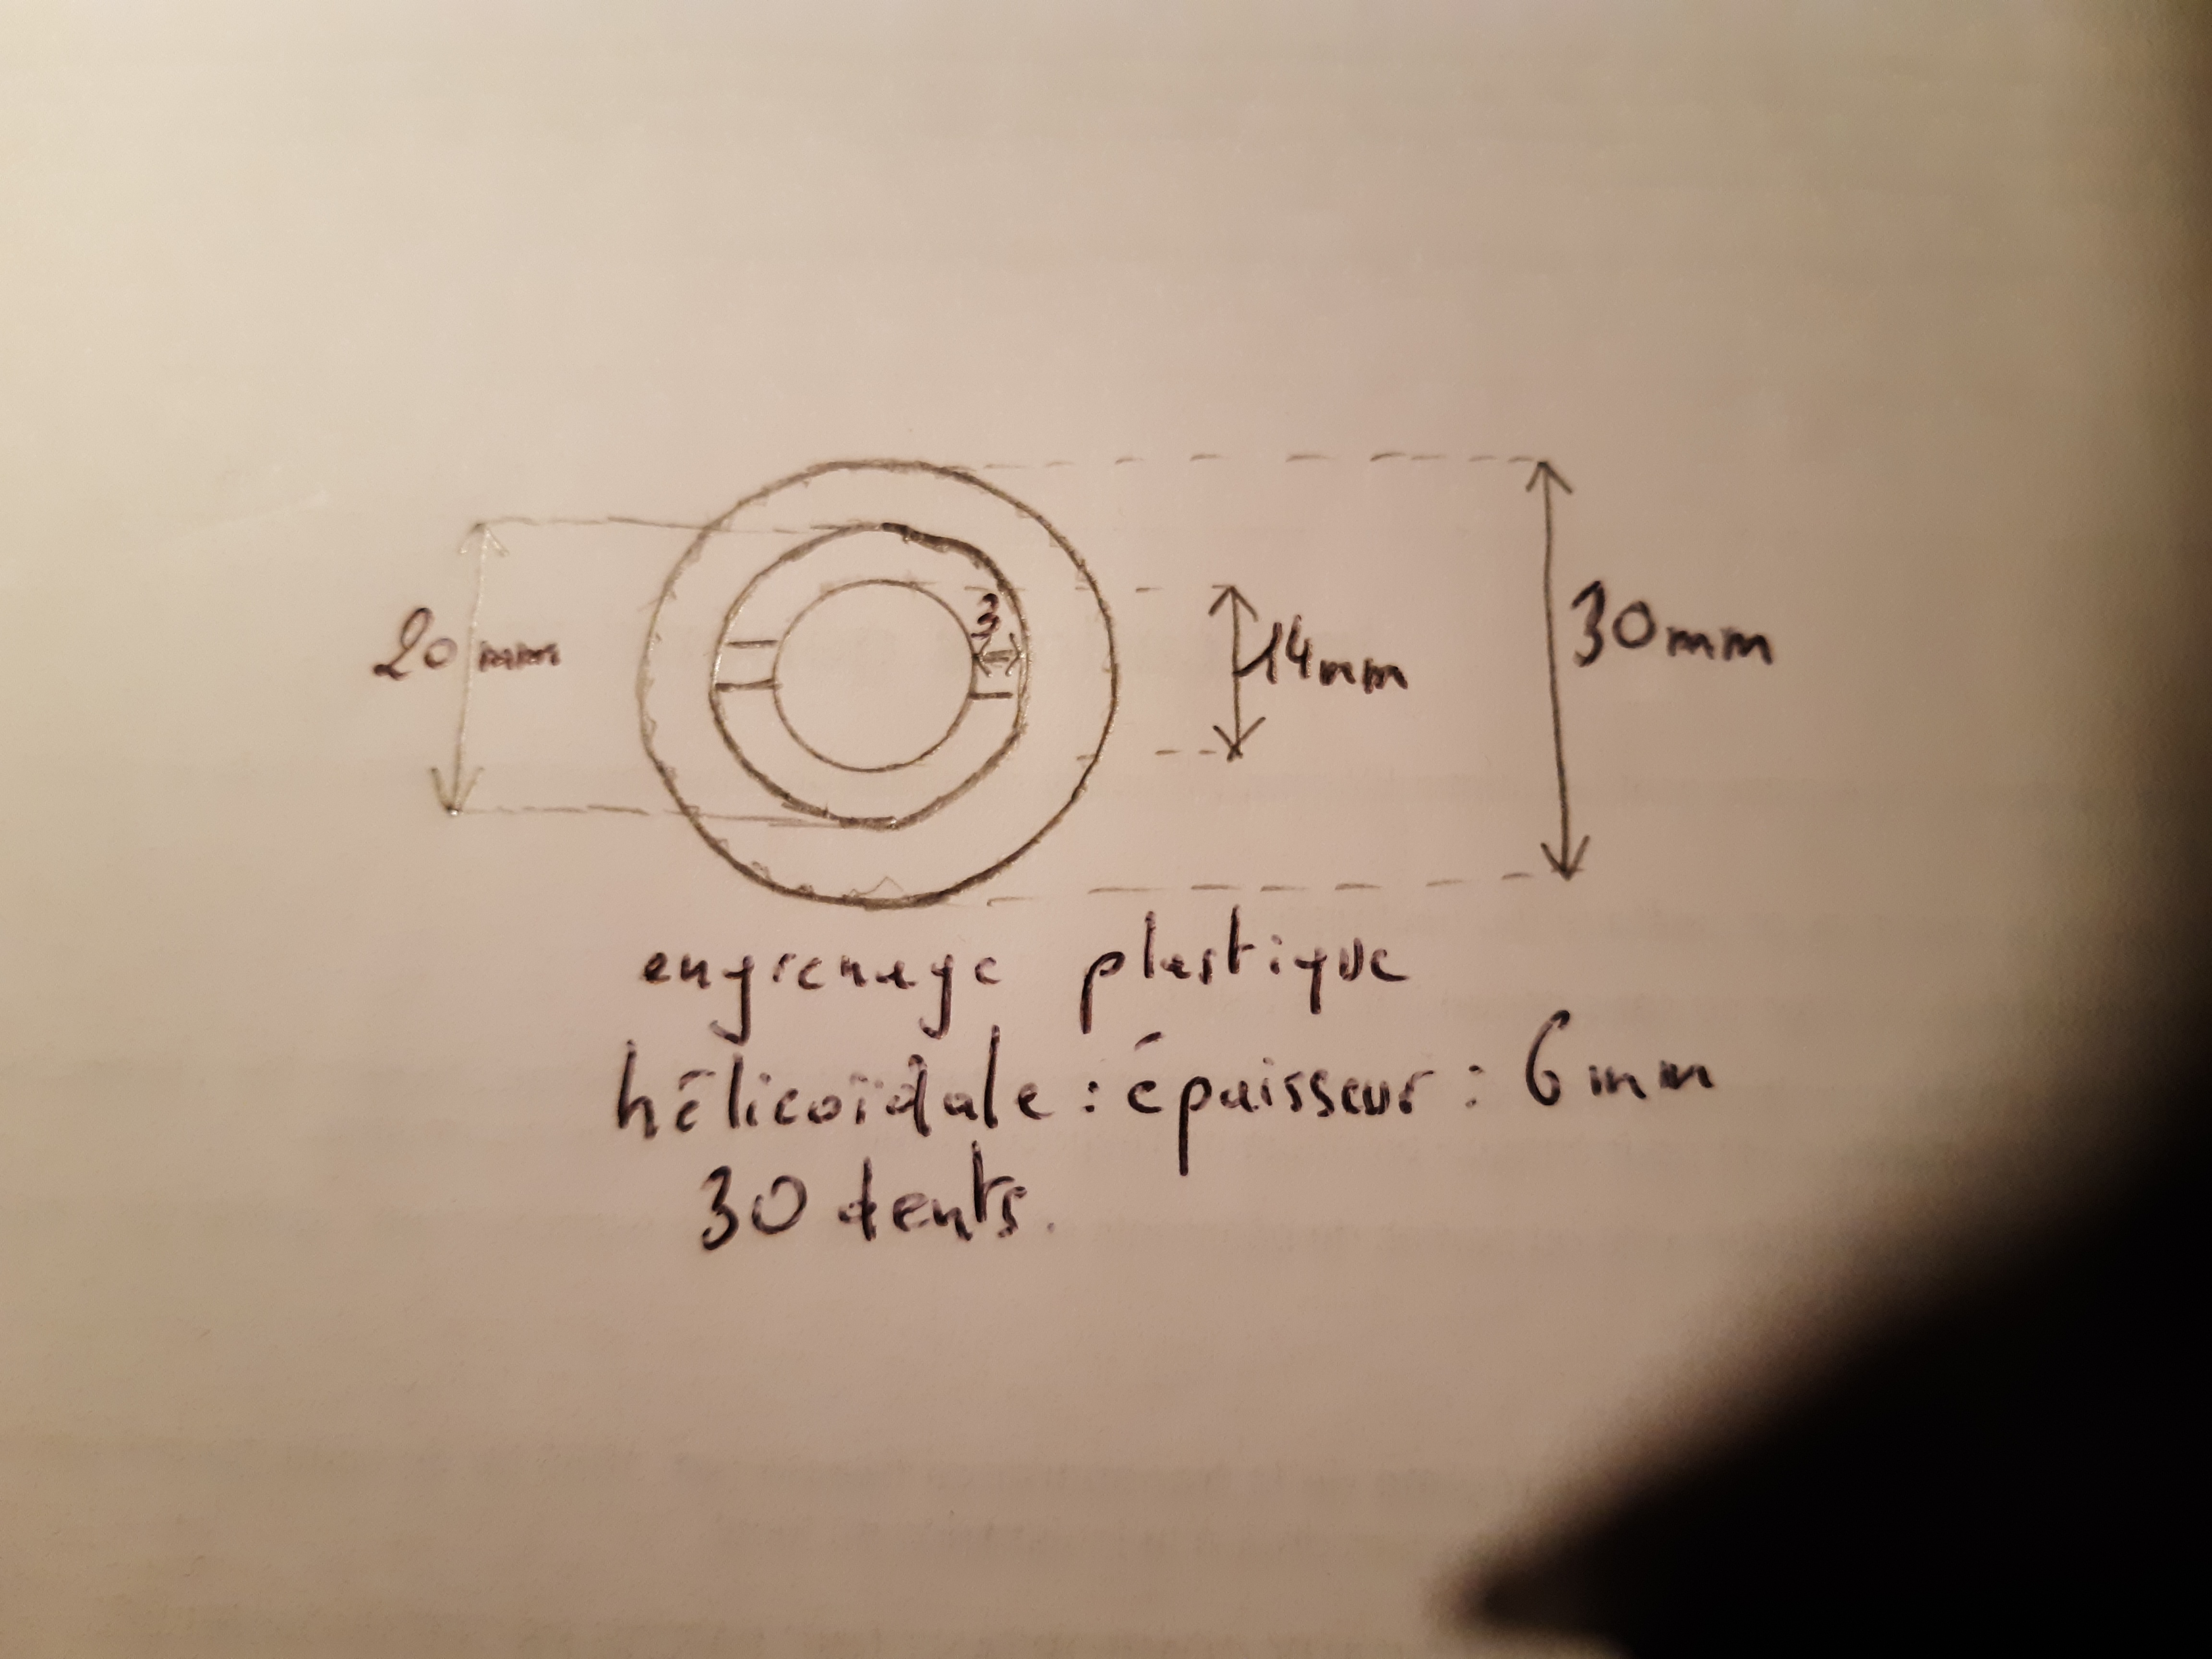 3
20 mm
14mm
30mm
engrenage plastique
hélicoïdale : épaisseur : 6 mm
30 dents.